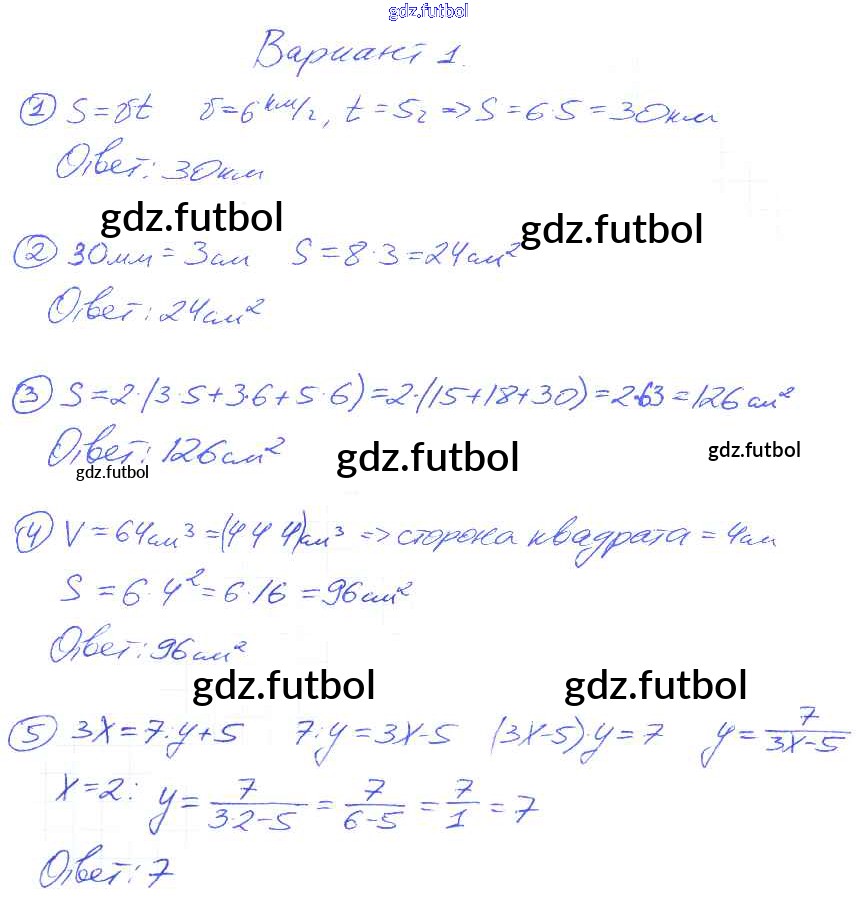 gdz.futbol
Вариант 1.
① S=vt v=6 км/ч, t=5ч => S=6·5=30км
Ответ: 30км
gdz.futbol gdz.futbol
② 30мм=3см S=8·3=24см²
Ответ: 24см²
③ S=2·(3·5+3·6+5·6)=2·(15+18+30)=2·63=126см²
Ответ: 126см²
gdz.futbol gdz.futbol gdz.futbol
④ V=64см³=(4·4·4)см³ => сторона квадрата=4см
S=6·4²=6·16=96см²
Ответ: 96см²
gdz.futbol gdz.futbol
⑤ 3x=7:y+5 7:y=3x-5 (3x-5)·y=7 y=7/(3x-5)
x=2: y=7/(3·2-5)=7/(6-5)=7/1=7
Ответ: 7